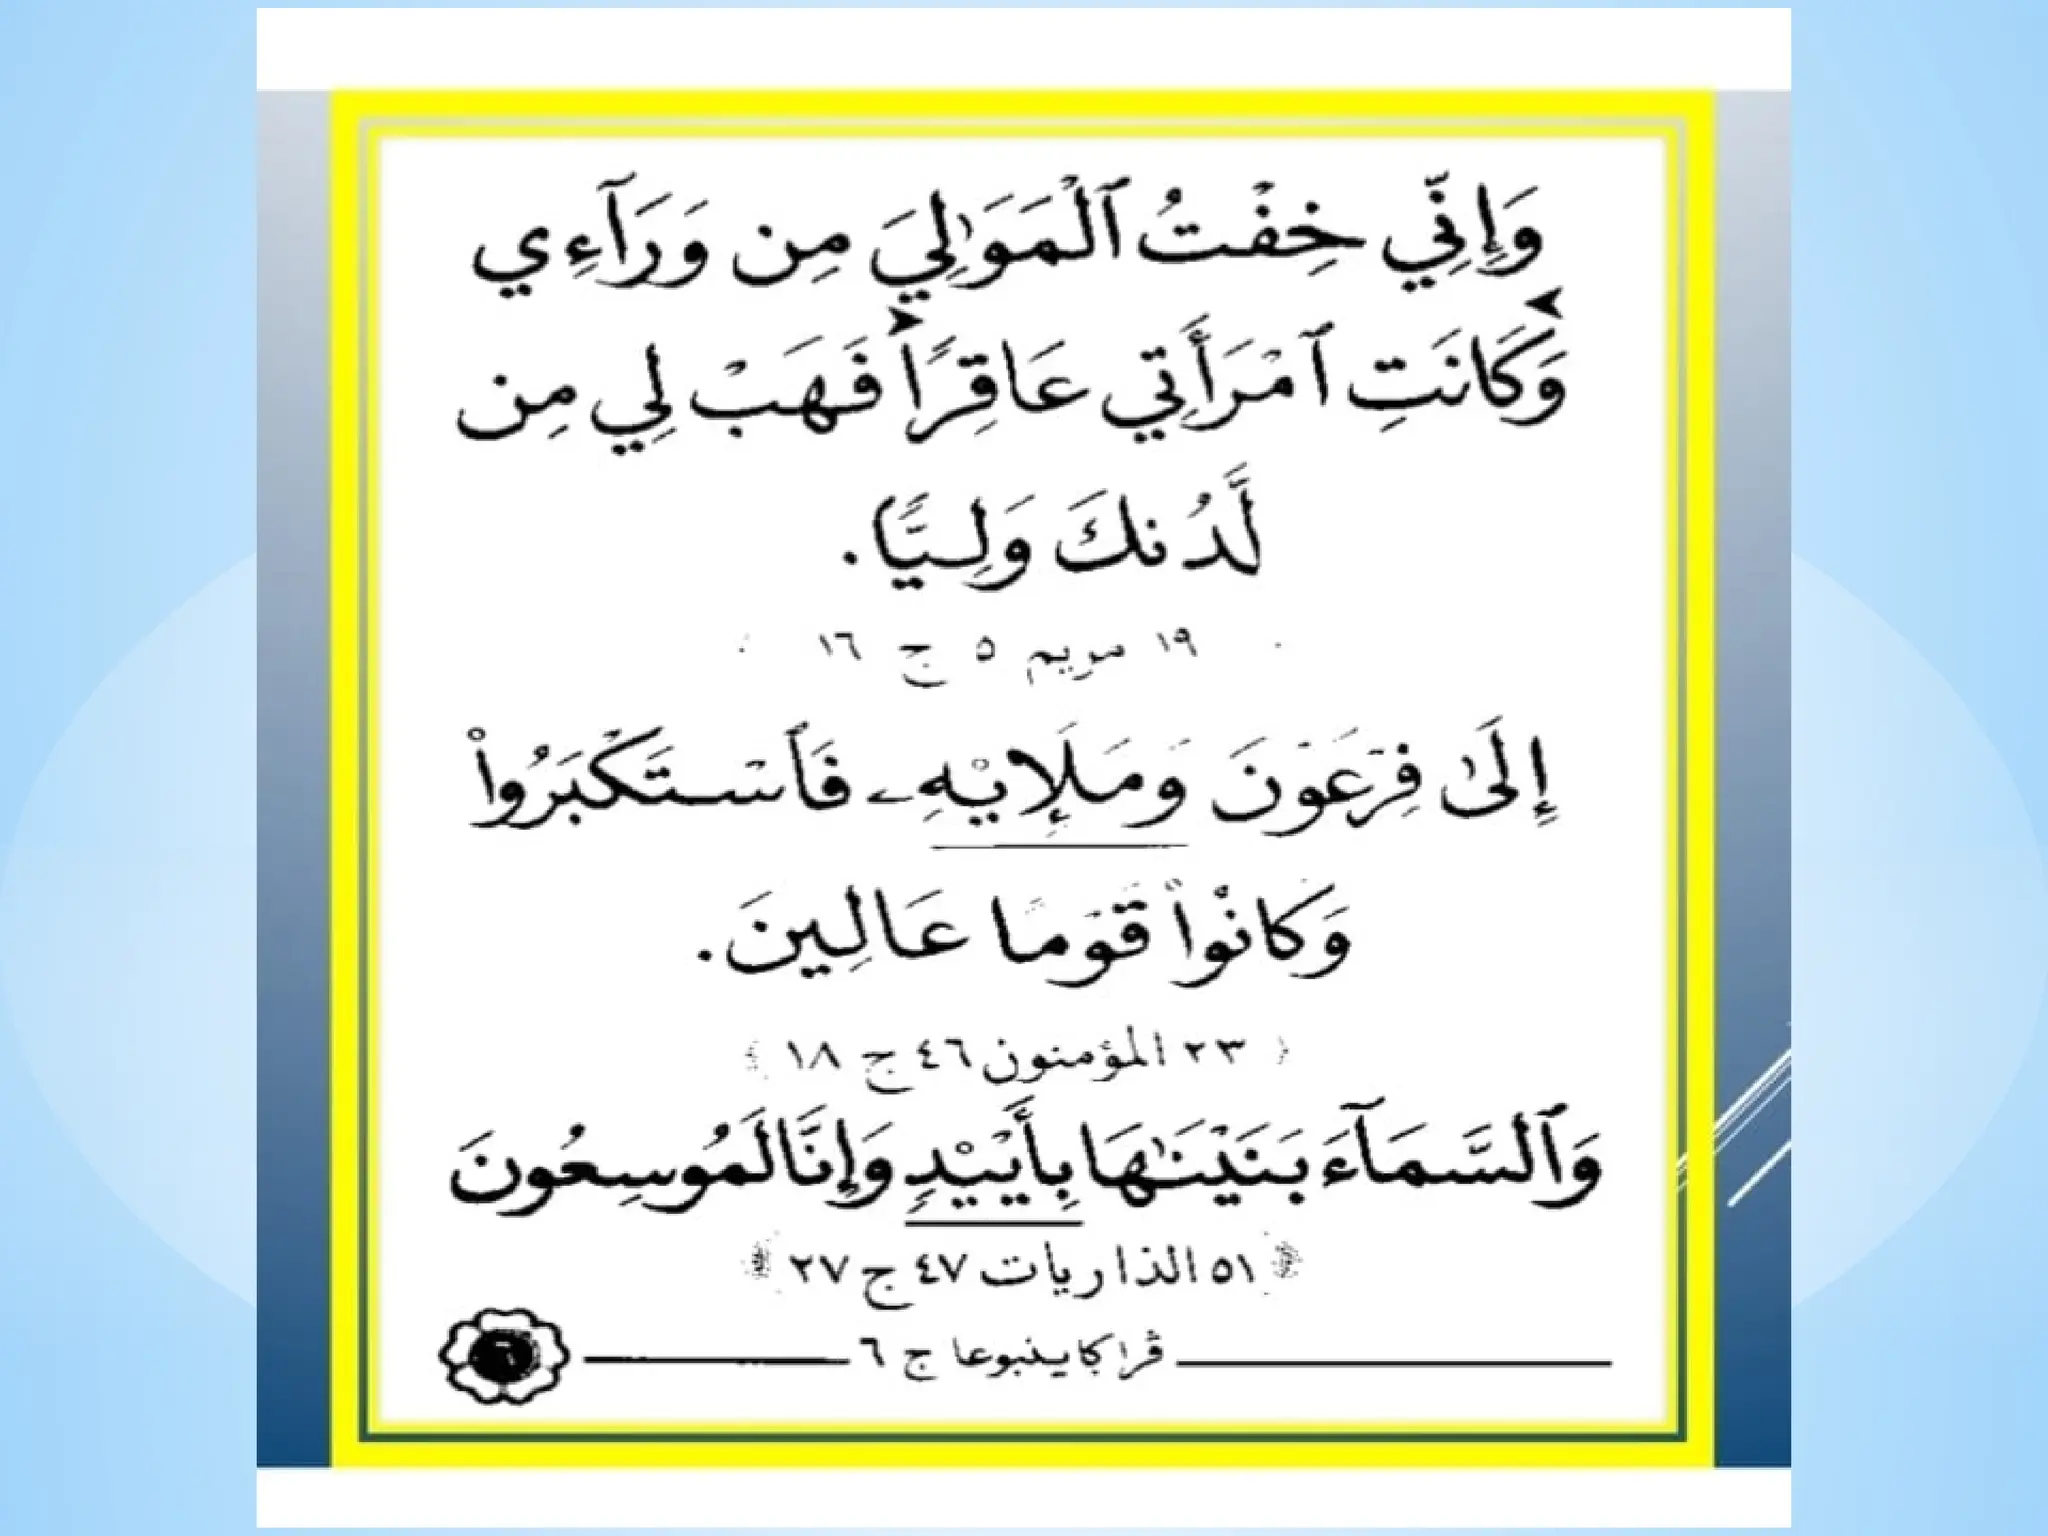 وَإِنِّي خِفْتُ ٱلْمَوَٰلِيَ مِن وَرَآءِي
وَكَانَتِ ٱمْرَأَتِي عَاقِرًا فَهَبْ لِي مِن
لَّدُنكَ وَلِيًّا.
١٩ مريم ٥ ج ١٦
إِلَىٰ فِرْعَوْنَ وَمَلَإِيْهِۦ فَٱسْتَكْبَرُوا۟
وَكَانُوا۟ قَوْمًا عَالِينَ.
٢٣ المؤمنون ٤٦ ج ١٨
وَٱلسَّمَآءَ بَنَيْنَٰهَا بِأَيْيْدٍ وَإِنَّا لَمُوسِعُونَ
٥١ الذاريات ٤٧ ج ٢٧
ج ٦
٦